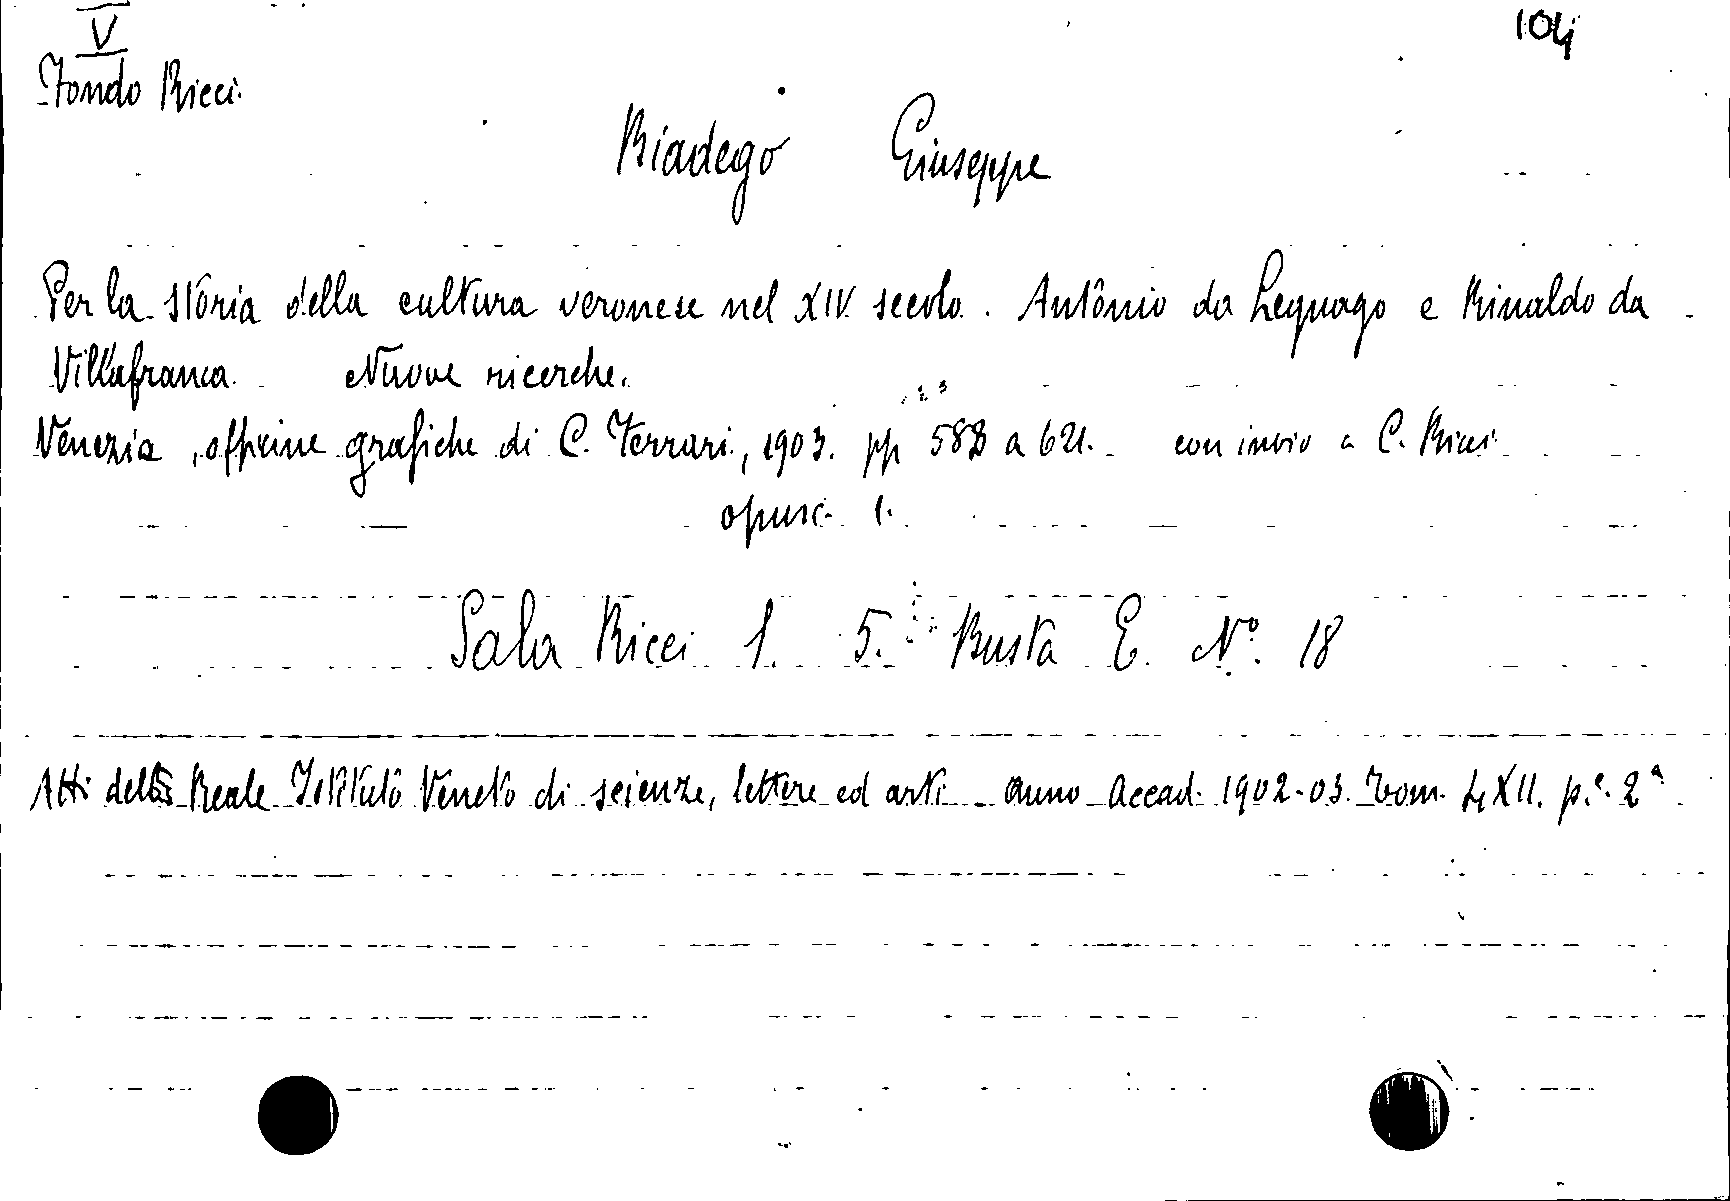 V
104
Fondo Ricci
Biadego Giuseppe
Per la storia della cultura veronese nel XIV secolo. Antonio da Legnago e Rinaldo da
Villafranca. Nuove ricerche.
Venezia, officine grafiche di C. Ferrari, 1903. pp 583 a 621. con invio a C. Ricci
opusc. 1.
Sala Ricci 1. 5. Busta E. N.º 18
Atti del Reale Istituto Veneto di scienze, lettere ed arti - anno accad. 1902-03. Tom. LXII. p.e 2ª